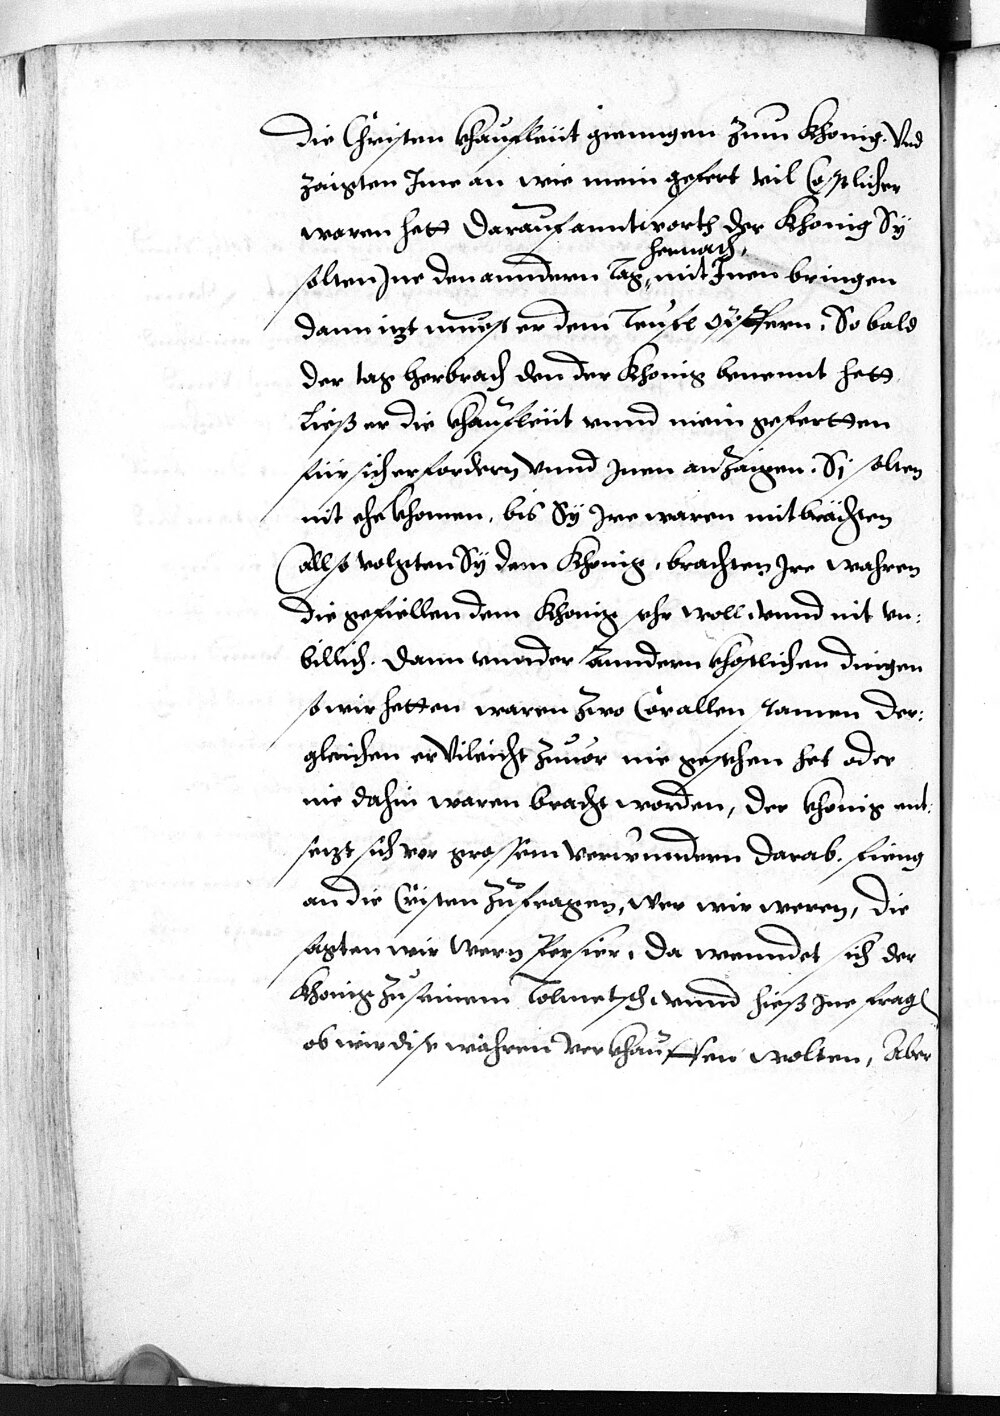 Die Christen khaufleüt gienngen zum Khonig. Vnd
zaigten Ime an wie mein gefert vil Costlicher
waren hett Darauf anntwortt der Khonig Sÿ
hernach,
solten Ine den anndern Tag mit Inen bringen
dann itzt muest er dem Teufl opffern. So bald
der tag herbrach den der Khonig benennt hett
Ließ er die khaufleüt vnnd mein gefertten
für sich erfordern vnnd Inen anzaigen. Si solten
nit ehe khomen, bis Sÿ Ire waren mitbrächten
Allso volgten Sÿ dem Khonig, brachten Ire wahren
die gefiellen dem Khonig sehr woll, vnnd nit vn:
billich. Dann vnnder anndern khostlichen dingen
so wir hetten waren zwo Corallen ramen der:
gleichen er Vileicht zuuor nie gesehen het oder
nie dahin waren bracht worden, der khonig ent:
setzt sich vor grossem verwunndern darab. fieng
an die Cristen zufragen, wer wir weren, die
sagten wir wern Persier, da wenndet sich der
Khonig zu seinem Tolmetsch, vnnd hieß Ine frag
ob wir dise wahren verkhauffen wolten, Aber